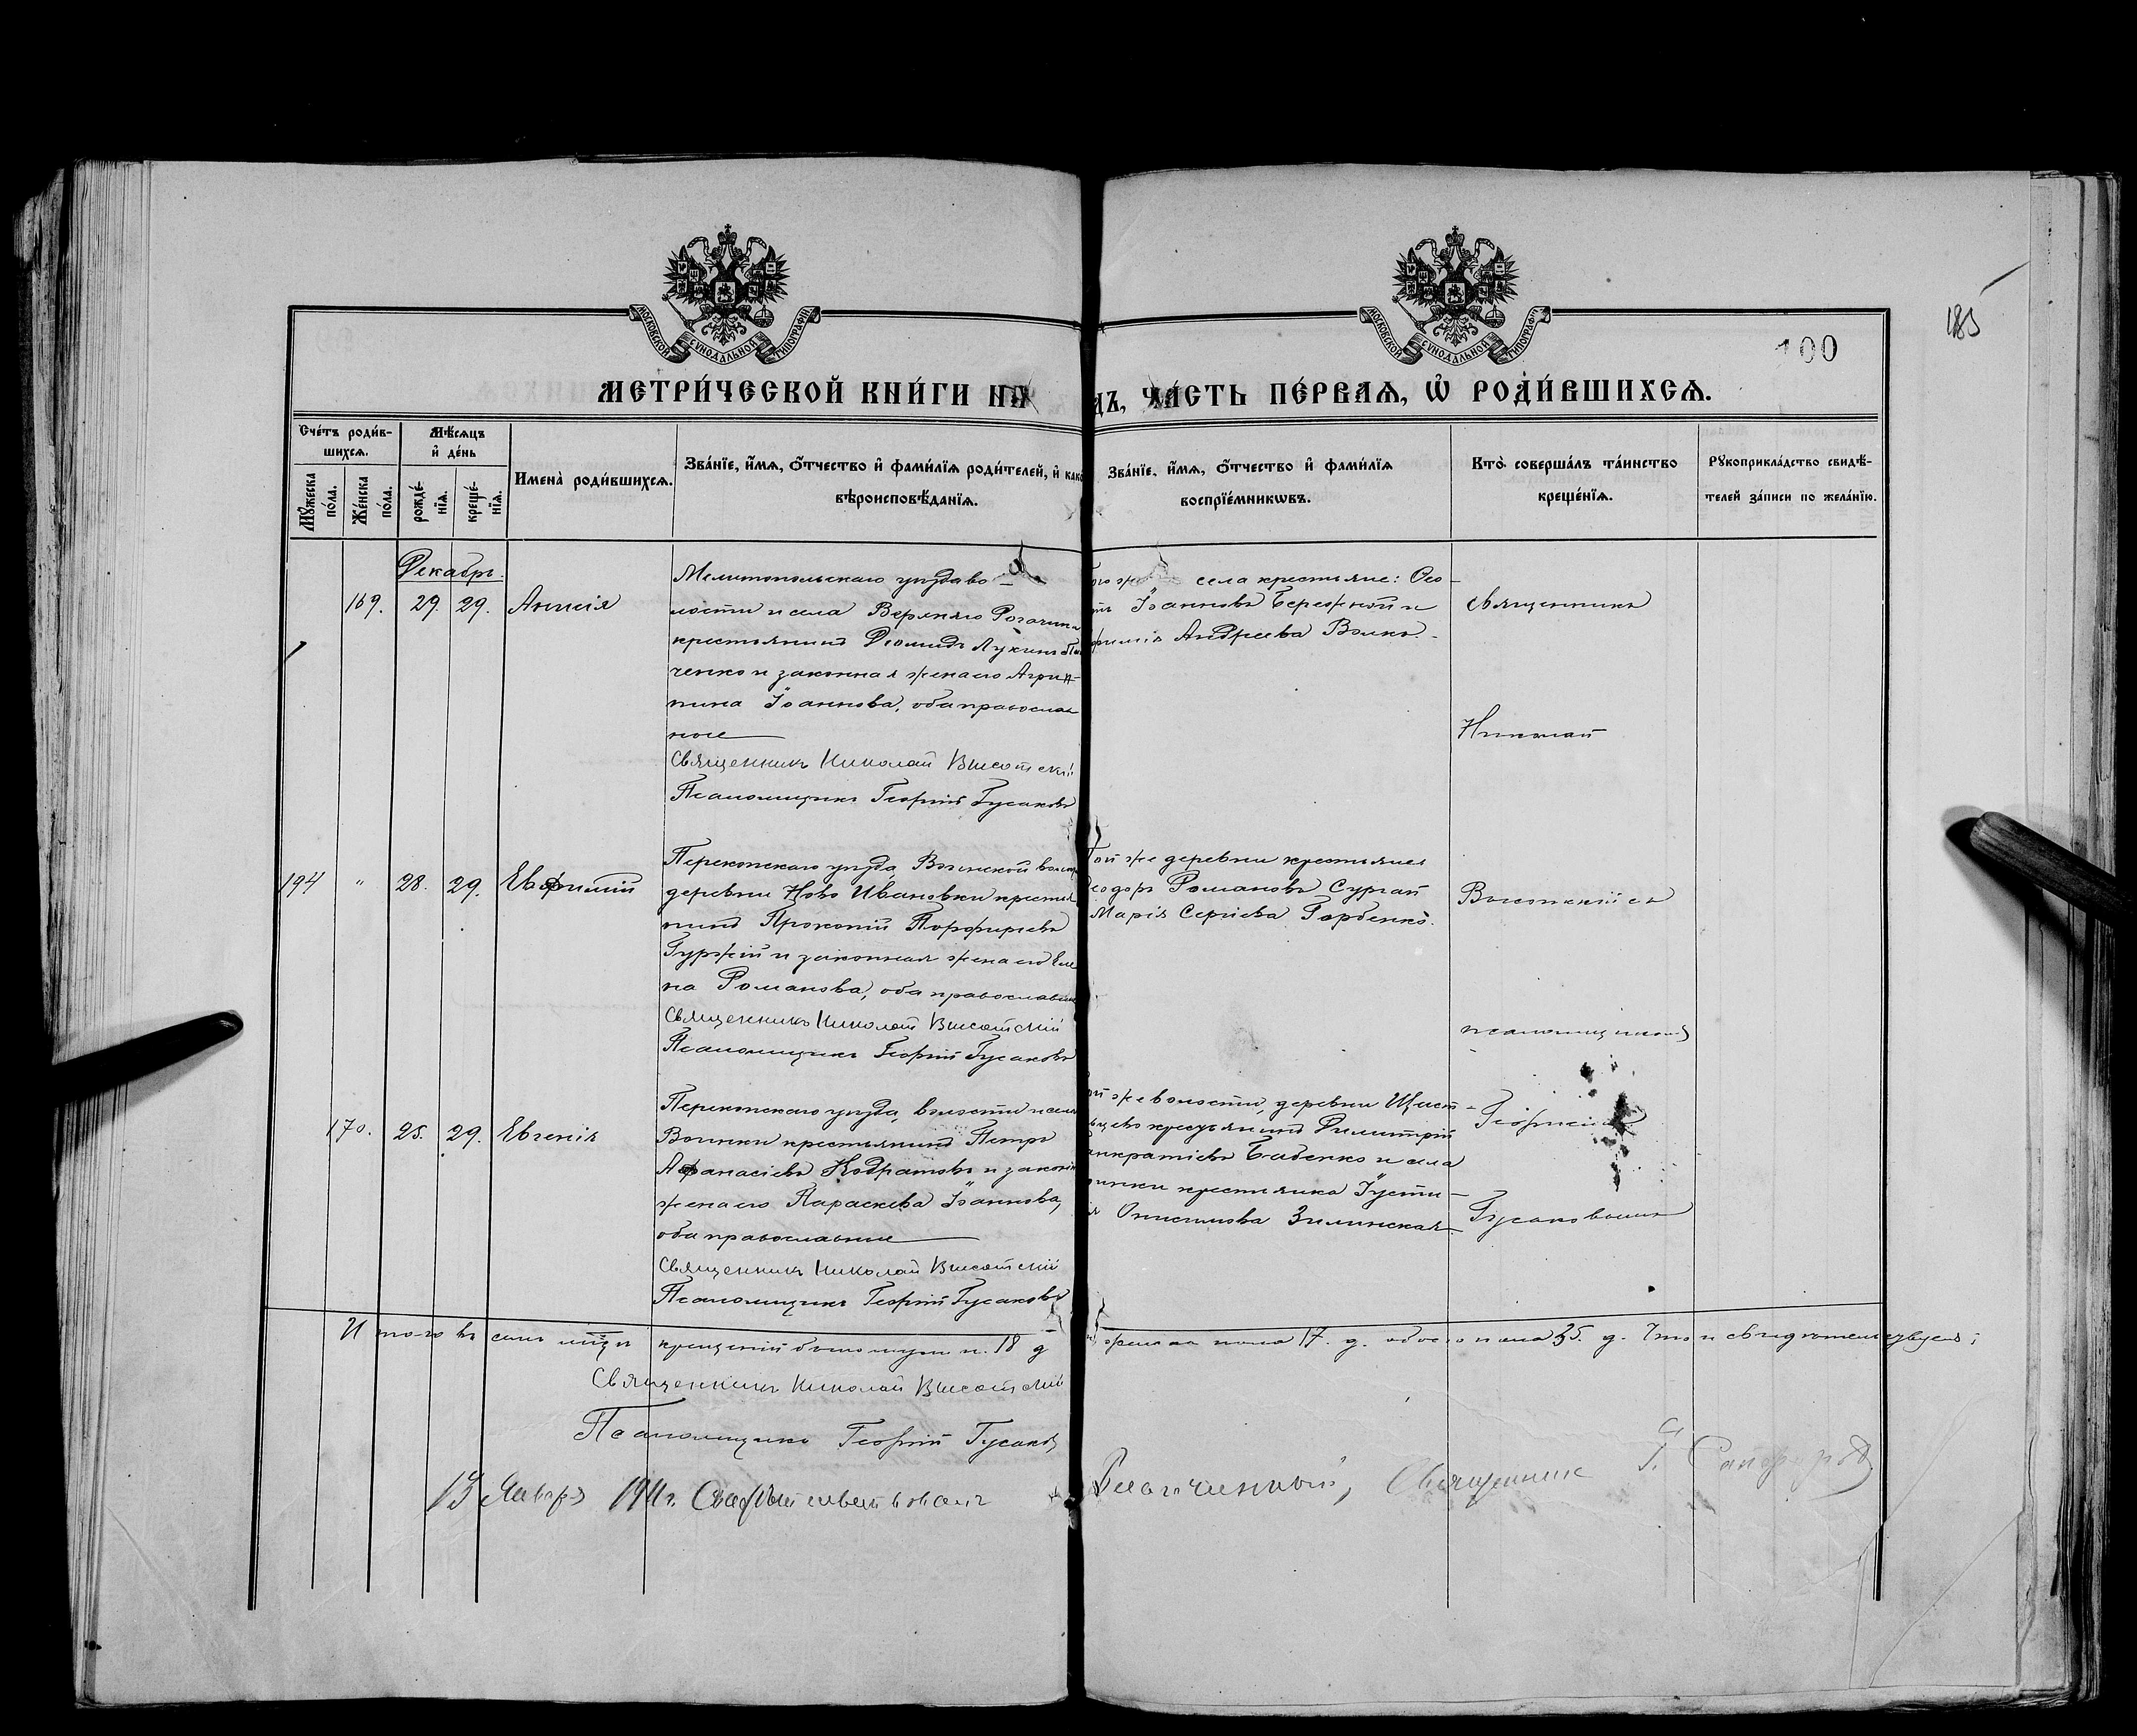 МОСКОВСКОЙ СУНОДАЛЬНОЙ ТИПОГРАФІИ
МОСКОВСКОЙ СУНОДАЛЬНОЙ ТИПОГРАФІИ
185
100
МЕТРИ́ЧЕСКОЙ КНИ́ГИ НА
ДЪ, ЧА́СТЬ ПЕ́РВАѦ, Ѡ҆ РОДИ́ВШИХСѦ.
Сче́тъ роди́в-
шихсѧ.
Мꙋ́жеска по́ла.
Же́нска по́ла.
Мѣ́сѧцъ
и҆ де́нь
рожде́-
нїѧ.
креще́-
нїѧ.
Имена̀ роди́вшихсѧ.
Зва́нїе, и҆́мѧ, ѻ҆́тчество и҆ фами́лїѧ роди́телей, и҆ како
вѣроисповѣ́данїѧ.
Зва́нїе, и҆́мѧ, ѻ҆́тчество и҆ фами́лїѧ
воспрїе́мникѡвъ.
Кто̀ соверша́лъ та́инство
креще́нїѧ.
Рꙋкоприкла́дство свидѣ́-
телей за́писи по жела́нїю.
Декабрь.
169. 29. 29. Анисія
Мелитопольскаго уѣзда во-
лости и села Верхняго Рогачика
крестьянинъ Діомидъ Лукинъ
ченко и законная жена его Агрип-
пина Іоаннова, оба православ
ные
Священникъ Николай Высотскій
Псаломщикъ Георгій Гусаковъ
села крестьяне: Ѳео-
Іоанновъ Бережной и
Андреева Волкъ.
Священникъ
Николай
194 " 28. 29. Евфимій
Перекопскаго уѣзда, Воинской волост
деревни Ново Ивановки крестья
нинъ Прокопій Порфирьевъ
Гуржій и законная жена его Еле
на Романова, оба православные
Священникъ Николай Высотскій
Псаломщикъ Георгій Гусаковъ
Той же деревни крестьяне:
еодоръ Романовъ Сургай
Марія Сергіева Горбенко.
Высотскій съ
псаломщикомъ
170. 25. 29. Евгенія
Перекопскаго уѣзда, волости и села
Воинки крестьянинъ Петръ
Афанасіевъ Кодратовъ и законн
жена его Параскева Іоаннова,
оба православные
Священникъ Николай Высотскій
Псаломщикъ Георгій Гусаковъ
ой же волости, деревни
крестьянинъ Димитрій
анкратіевъ Бабенко и села
оинки крестьянка Іусти-
я Онисимова Зилинская.
Георгіемъ
Гусаковымъ
Итого въ семъ мѣсяцѣ крещеній было муж. п. 18 д
женска пола 17. д. обоего пола 35. д. Что и свидѣтельствуемъ:
Священникъ Николай Высотскій
Псаломщикъ Георгій Гусаковъ
13 Января 1911г. Свидѣтельствовалъ
Благочинный, Священникъ